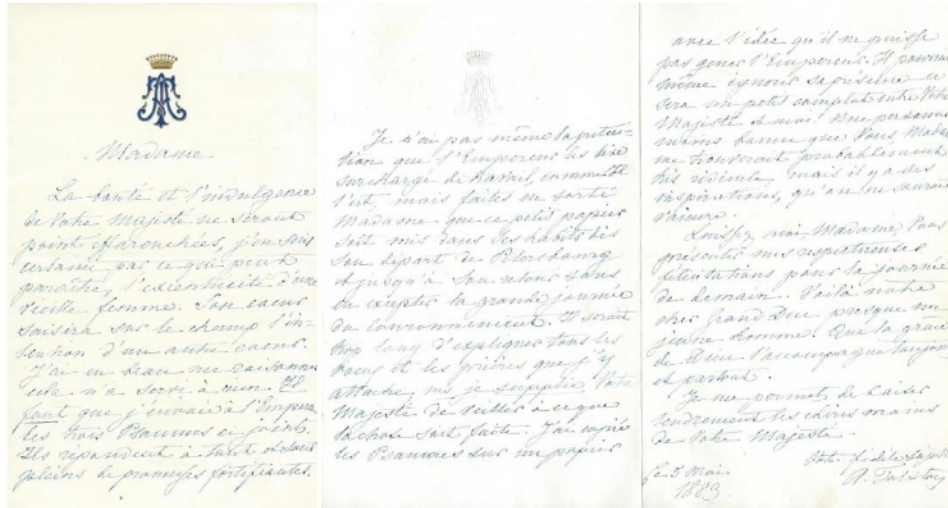 Madame
La bonté et l'indulgence
de Votre Majesté ne seront
point éfarouchées, j'en suis
certaine par ce que peut
paraître, l'exientricité d'une
vieille femme. Son coeur
saisira sur le champ l'in-
tention d'un autre coeur.
J'ai eu beau me raisonner
cela n'a servi à rien. Il
faut que j'envoie à l'Empereur
les trois Psaumes ci joints.
Ils répondent à tout et sont
pleins de promesses fortifiantes.
Je n'ai pas même la préten-
tion que l'Empereur les lise
surchargé de travail, comme Il
l'est, mais faites en sorte
Madame que ce petit papier
soit mis dans Ses habits dès
Son départ de Pétersbourg
et jusqu'à Son retour sans
en excepter la grande journée
du couronnement. Il serait
trop long d'expliquer tous les
voeux et les prières que j'y
attache, mais je supplie Votre
Majesté de veiller à ce que
la chose soit faite. J'ai copié
les Psaumes sur un papier
avec l'idée qu'il ne puisse
pas gener l'Empereur. Il pourrait
même ignorer sa présence ce
sera un petit complot entre Votre
Majesté et moi. Une personne
moins bonne que Vous, Madame
me trouverait probablement
très ridicule, mais il y a des
inspirations, qu'on ne saurait
vaincre.
Laissez moi, Madame, Vous
présenter mes respectueuses
félicitations pour la journée
de demain. Voilà notre
cher Grand Duc presque un
jeune homme. Que la grâce
de Dieu l'accompagne toujours
et partout.
Je me permets de baiser
tendrement les chères mains
de Votre Majesté.
Votre fidèle sujette
le 5 Mai
A. Tolstoy
1883